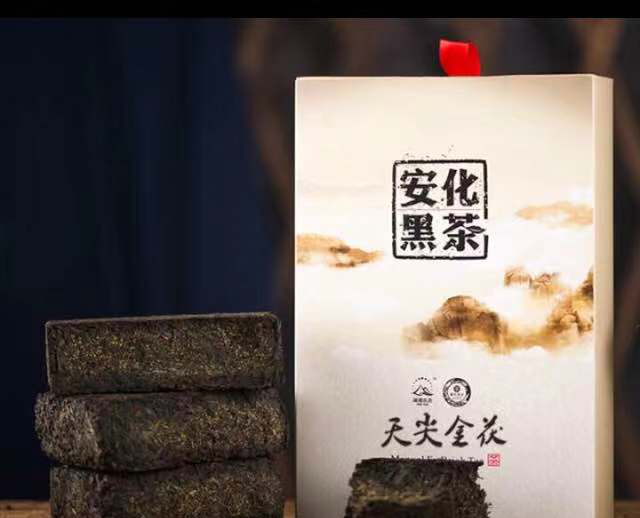 安化
黑茶
天尖金茯